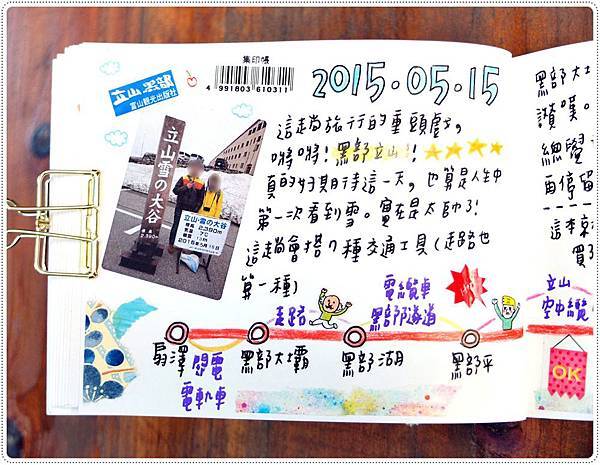 立山黑部
富山観光出版社
集印帳
4 991803 610311
2015.05.15
這趟旅行的重頭戲,
嘚嘚!黑部立山!
真的好期待這一天,也算是人生中
第一次看到雪。實在是太帥了!
這趟會搭7種交通工具(走路也
算一種)
立山雪の大谷
標高
2,390m
立山・雪の大谷
2,390m
7℃
2015年5月15日
走路
電纜車
黑部隧道
立山
空中纜
扇澤
閃電
電軌車
黑部大壩
黑部湖
黑部平
OK
黑部大
讚嘆。
總覺
再停留
這本來
買